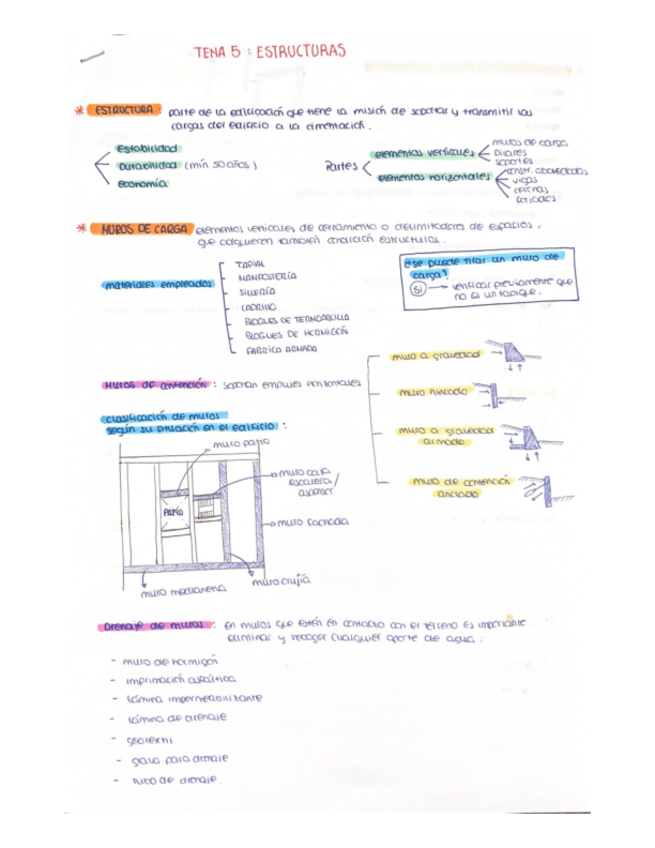 TEMA 5 : ESTRUCTURAS
* ESTRUCTURA : parte de la edificación que tiene la misión de soportar y transmitir las
cargas del edificio a la cimentación.
estabilidad
durabilidad (mín 50 años)
economía
Partes
elementos verticales
muros de carga
pilares
soportes
elementos horizontales
constr. abovedadas
vigas
cerchas
forjados
* MUROS DE CARGA elementos verticales de cerramiento o delimitadores de espacios,
que adquieren también condición estructural.
materiales empleados
TAPIAL
MAMPOSTERÍA
SILLERÍA
LADRILLO
BLOQUES DE TERMOARCILLA
BLOQUES DE HORMIGÓN
FÁBRICA ARMADA
¿se puede tirar un muro de
carga?
SI → verificar previamente que
no es un tabique.
Muros de contención : soportan empujes horizontales
muro a gravedad
muro hincado
muro a gravedad
armado
muro de contención
anclado
clasificación de muros
según su situación en el edificio :
muro patio
muro caja
escalera/
ascensor
PATIO
muro fachada
muro medianera
muro crujía
Drenaje de muros : en muros que estén en contacto con el terreno es importante
eliminar y recoger cualquier aporte de agua :
- muro de hormigón
- imprimación asfáltica
- lámina impermeabilizante
- lámina de drenaje
- geotextil
- grava para drenaje
- tubo de drenaje.